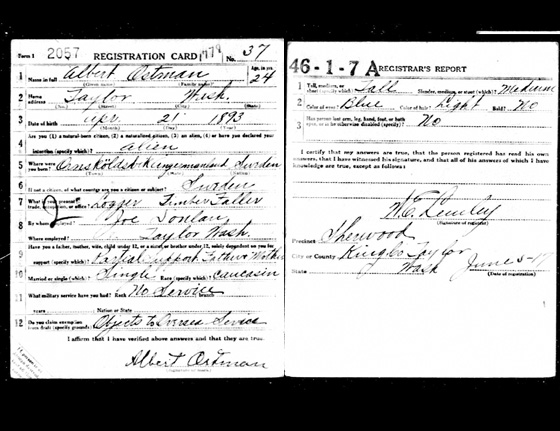 Form 1 2057 REGISTRATION CARD 1779 No. 37
1 Name in full Albert Ostman Age, in yrs 24
(Given name) (Family name)
2 Home address Taylor Wash.
(No.) (Street) (City) (State)
3 Date of birth Apr. 21 1893
(Month) (Day) (Year)
4 Are you (1) a natural-born citizen, (2) a naturalized citizen, (3) an alien, (4) or have you declared your
intention (specify which)? alien
5 Where were you born? Sweden
(Town) (State) (Nation)
6 If not a citizen, of what country are you a citizen or subject? Sweden
7 What is your present trade, occupation, or office? Logger Timber Faller
2
8 By whom employed? Joe Donlan
Where employed? Taylor Wash.
9 Have you a father, mother, wife, child under 12, or a sister or brother under 12, solely dependent on you for
support (specify which)? Partial support Father & Mother
10 Married or single (which)? Single Race (specify which)? Caucasin
11 What military service have you had? Rank No Service branch
years Nation or State
12 Do you claim exemption from draft (specify grounds)? Objects to Oversea Service
I affirm that I have verified above answers and that they are true.
Albert Ostman
46-1-7 A REGISTRAR'S REPORT
1 Tall, medium, or short (specify which)? Tall Slender, medium, or stout (which)? Medium
2 Color of eyes? Blue Color of hair? Light Bald? No
3 Has person lost arm, leg, hand, foot, or both eyes, or is he otherwise disabled (specify)? No
I certify that my answers are true, that the person registered has read his own
answers, that I have witnessed his signature, and that all of his answers of which I have
knowledge are true, except as follows:
(Signature of registrar)
Precinct Sherwood
City or County King Co Taylor
State Wash June 5-17
(Date of registration)